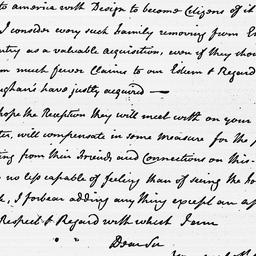 to america with Design to become Citizens of it
I consider every such family removing from E
ntry as a valuable acquisition, even if they shou
m much fewer Claims to our Esteem & Regard
ughan's have justly acquired —
hope the Reception they will meet with on your
ter, will compensate in some measure for the p
ting from their Friends and Connections on this
o less capable of feeling than of seeing the
I forbear adding any thing except an
Respect & Regard with which I am
Dear Sir